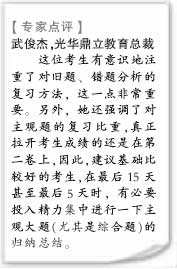 【专家点评】
武俊杰,光华鼎立教育总裁
这位考生有意识地注
重了对旧题、错题分析的
复习方法，这一点非常重
要。另外，她还强调了对
主观题的复习比重，真正
拉开考生成绩的还是在第
二卷上,因此,建议基础比
较好的考生,在最后 15 天
甚至最后 5 天时，有必要
投入精力集中进行一下主
观大题(尤其是综合题)的
归纳总结。